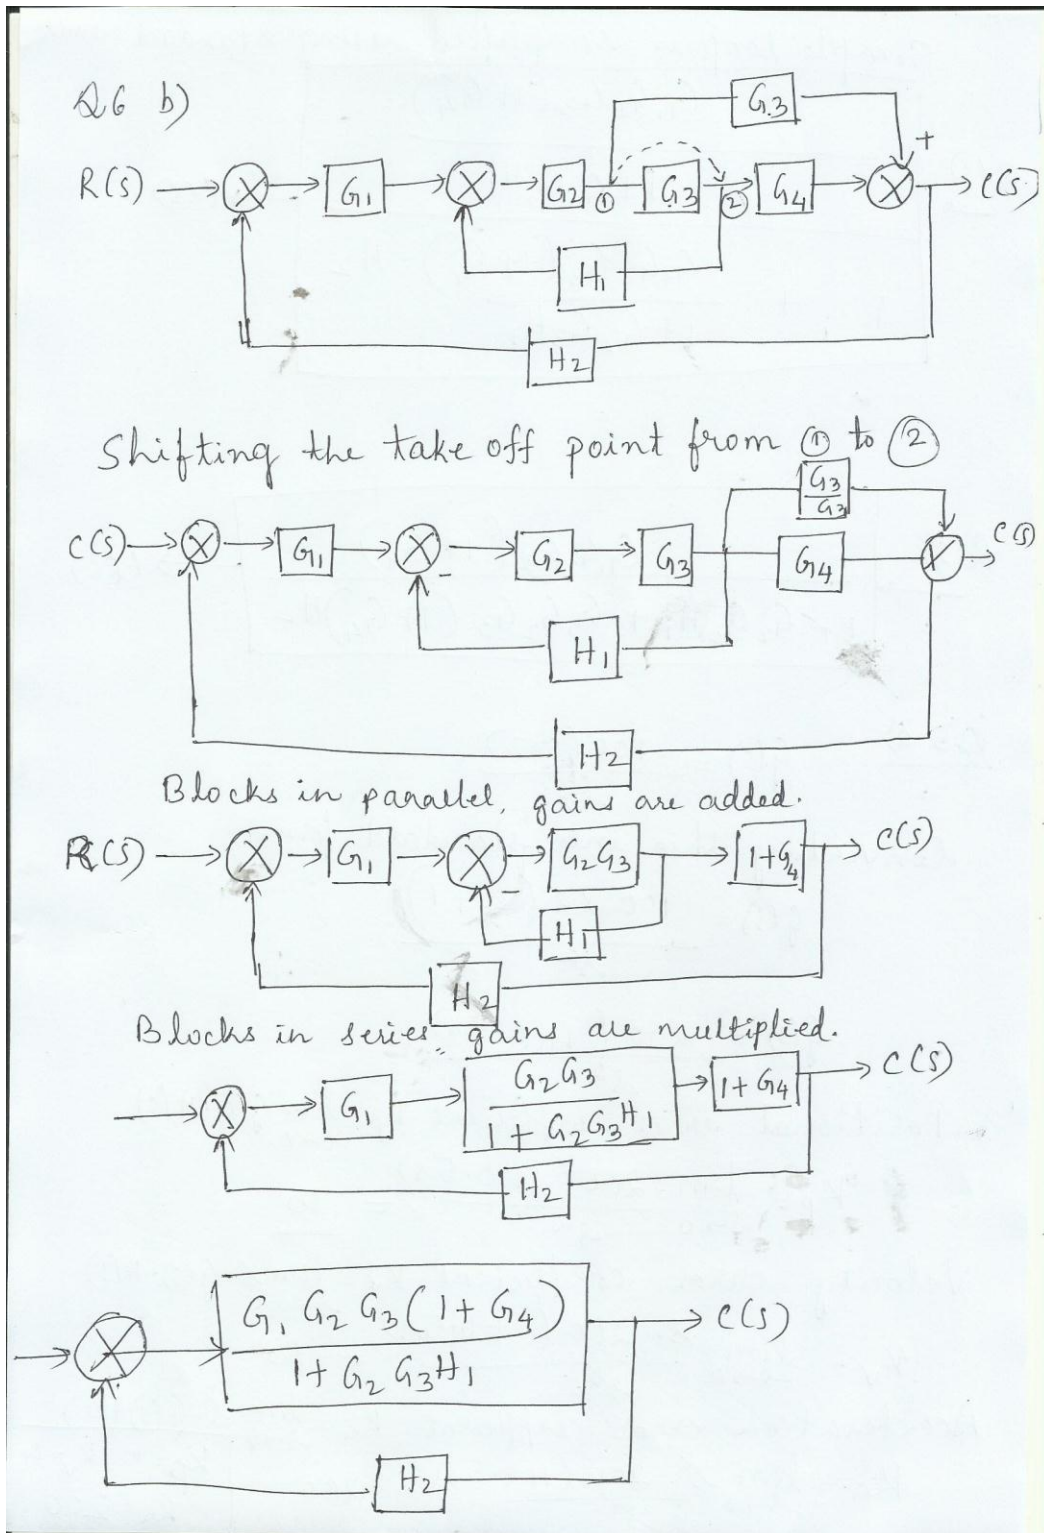 Q6 b)
G3
+
R(S) G1 G2 ① G3 ② G4 C(S)
H1
H2
Shifting the take off point from ① to ②
G3
G3
C(S) G1 - G2 G3 G4 C(S)
H1
H2
Blocks in parallel, gains are added.
R(S) G1 - G2G3 1+G4 C(S)
H1
H2
Blocks in series, gains are multiplied.
G1 G2G3 1+G4 C(S)
1+G2G3H1
H2
G1 G2 G3(1+G4) C(S)
1+G2G3H1
H2